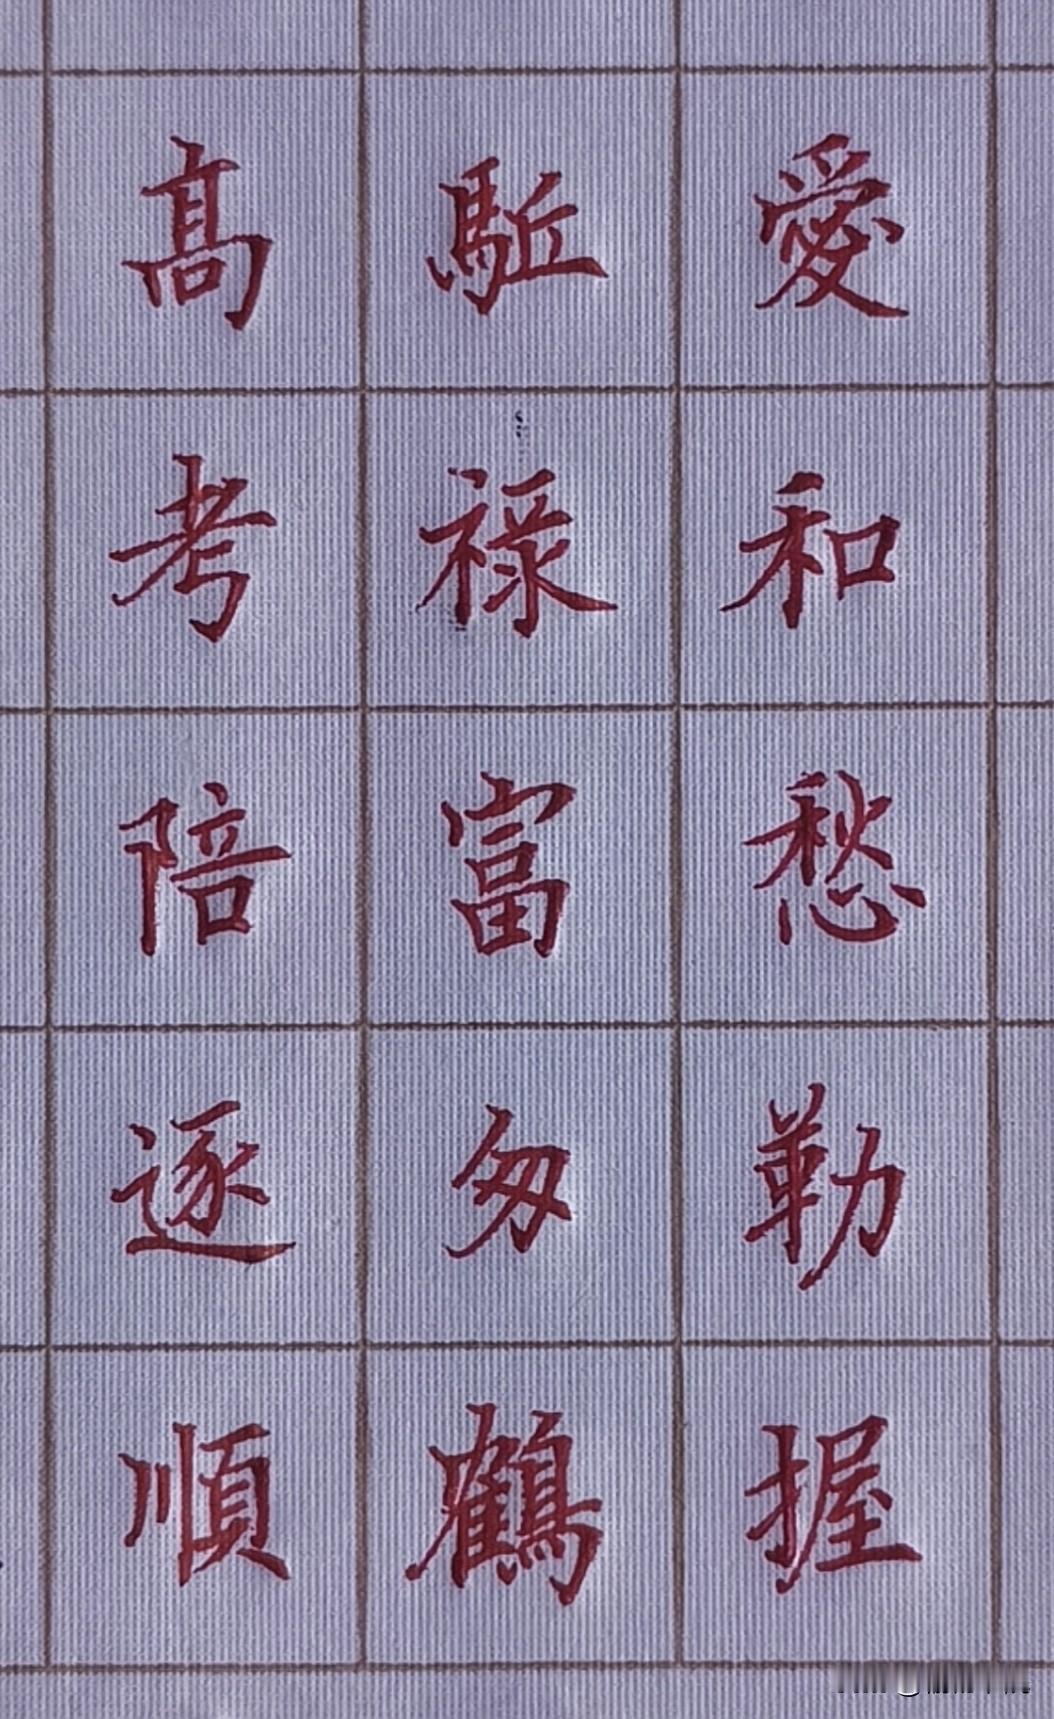 愛和愁勒握
駈禄富匆鶴
髙考陪逐順